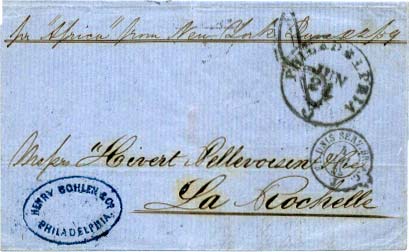 pr "Africa" from New York June 22/59
PHILADELPHIA
JUN
Messrs Hivert Pellevoisin
La Rochelle
HENRY BOHLEN & CO
PHILADELPHIA.